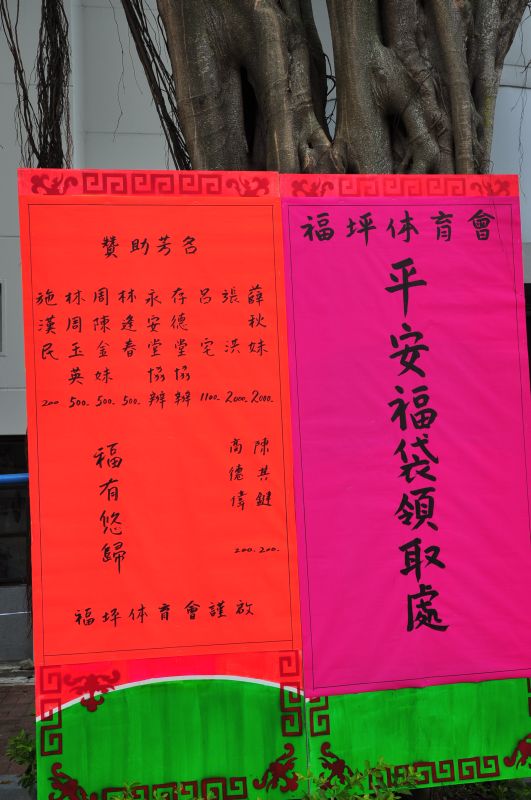 福坪体育會
平安福袋領取處
贊助芳名
薛秋妹 2000.
張洪 2000.
呂宅 1100.
存德堂 協辦
永安堂 協辦
林逢春 500.
周陳金妹 500.
林周玉英 500.
施漢民 200
陳其鍵 200.
高德偉 200.
福有悠歸
福坪体育會謹啟